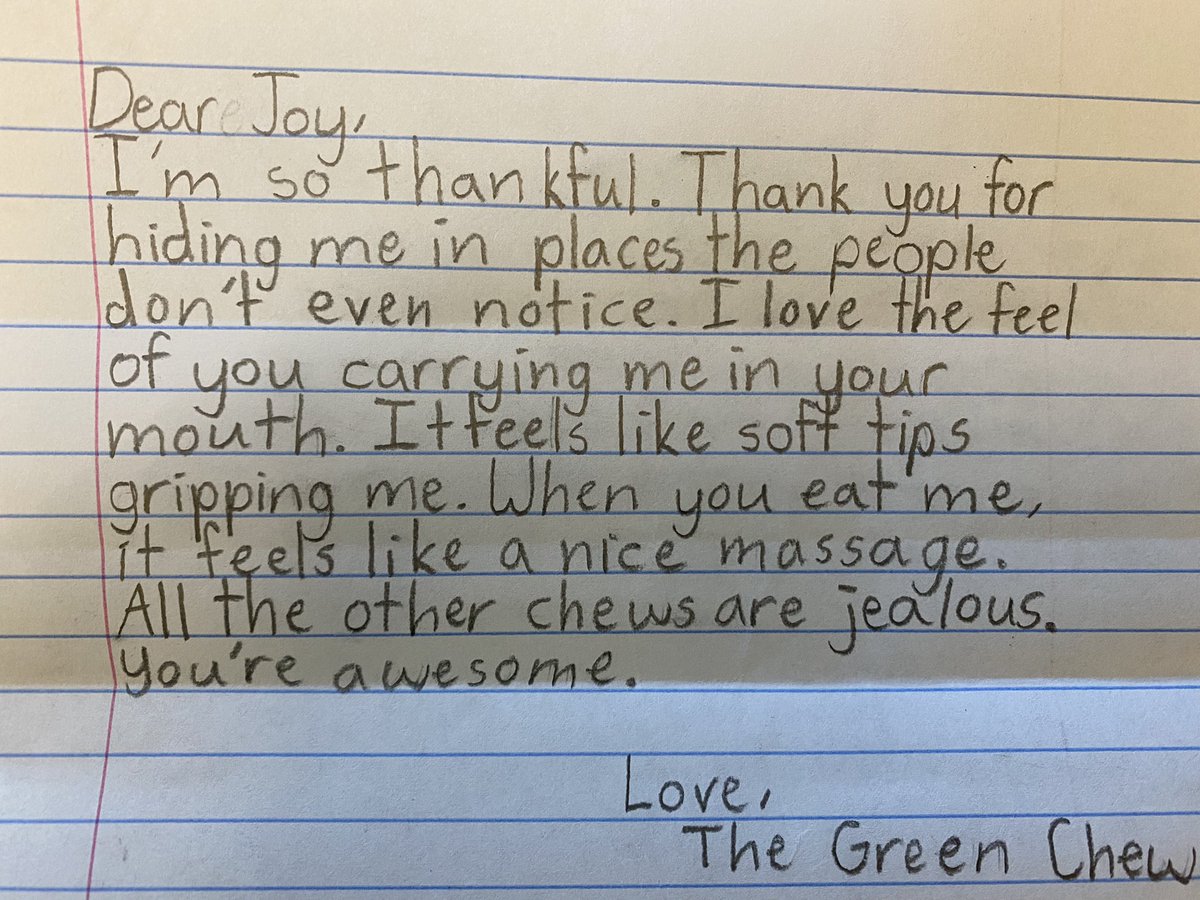 Dear Joy,
I'm so thankful. Thank you for
hiding me in places the people
don't even notice. I love the feel
of you carrying me in your
mouth. It feels like soft tips
gripping me. When you eat me,
it feels like a nice massage.
All the other chews are jealous.
You're awesome.
Love,
The Green Chew